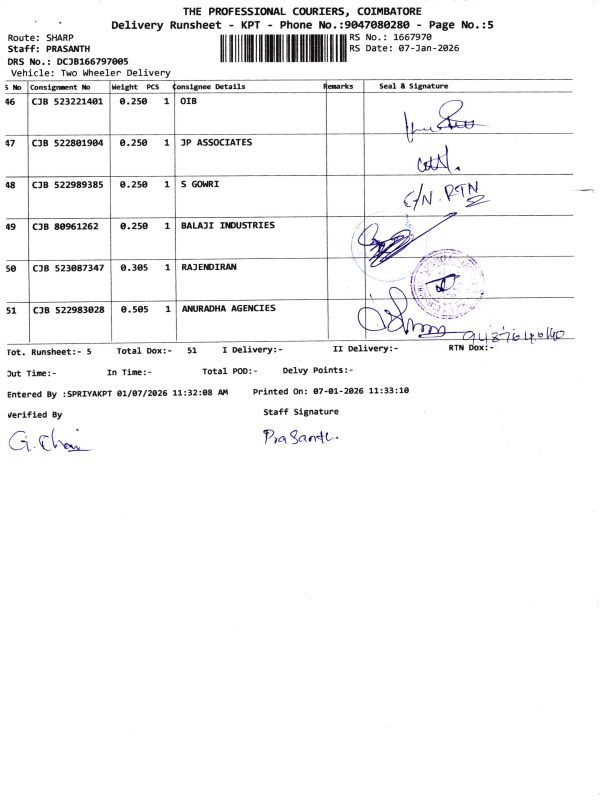 THE PROFESSIONAL COURIERS, COIMBATORE
Delivery Runsheet - KPT - Phone No.:9047080280 - Page No.:5
Route: SHARP RS No.: 1667970
Staff: PRASANTH RS Date: 07-Jan-2026
DRS No.: DCJB166797005
Vehicle: Two Wheeler Delivery
S No Consignment No Weight PCS Consignee Details Remarks Seal & Signature
46 CJB 523221401 0.250 1 OIB
47 CJB 522801904 0.250 1 JP ASSOCIATES
48 CJB 522989385 0.250 1 S GOWRI C/N. RTN
49 CJB 80961262 0.250 1 BALAJI INDUSTRIES
50 CJB 523087347 0.305 1 RAJENDIRAN
51 CJB 522983028 0.505 1 ANURADHA AGENCIES
Tot. Runsheet:- 5 Total Dox:- 51 I Delivery:- II Delivery:- RTN Dox:-
Out Time:- In Time:- Total POD:- Delvy Points:-
Entered By :SPRIYAKPT 01/07/2026 11:32:08 AM Printed On: 07-01-2026 11:33:10
Verified By Staff Signature
Prasanth.